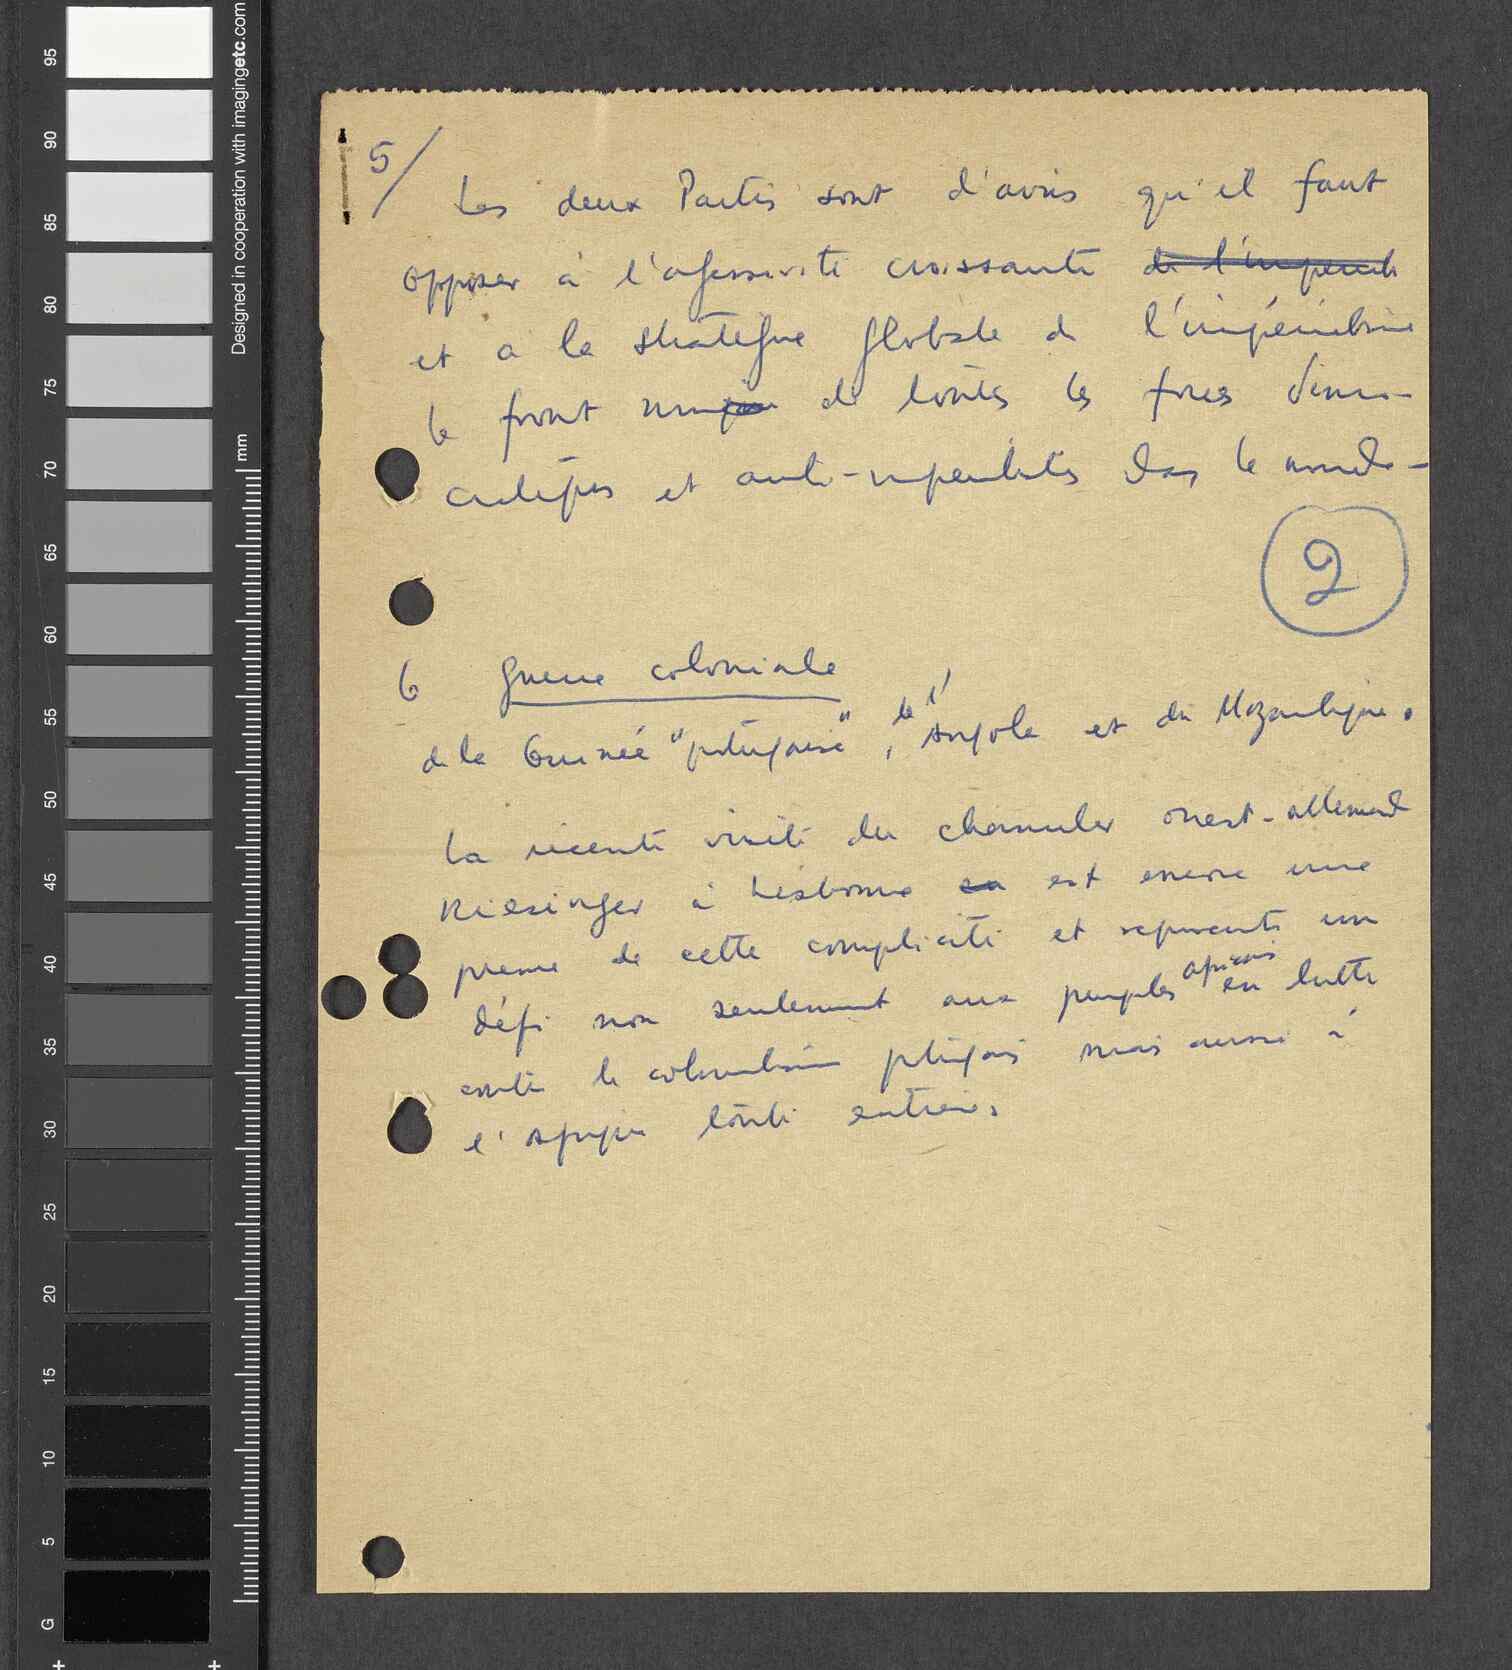 5/ Les deux Partis sont d'avis qu'il faut
opposer à l'agressivité croissante de l'impériali
et à la stratégie globale de l'impérialisme
le front de toutes les forces démo-
cratiques et anti-impérialistes dans le monde -
2
6 guerre coloniale
de la Guinée "portugaise", de l'Angola et du Mozambique.
La récente visite du chancelier ouest-allemand
Kiesinger à Lisbonne est encore une
preuve de cette complicité et représente un
défi non seulement aux peuples africains en lutte
contre le colonialisme portugais mais aussi à
l'Afrique toute entière.
95
90
85
80
75
70
65
60
55
50
45
40
35
30
25
20
15
10
5
G
mm
Designed in cooperation with imagingetc.com